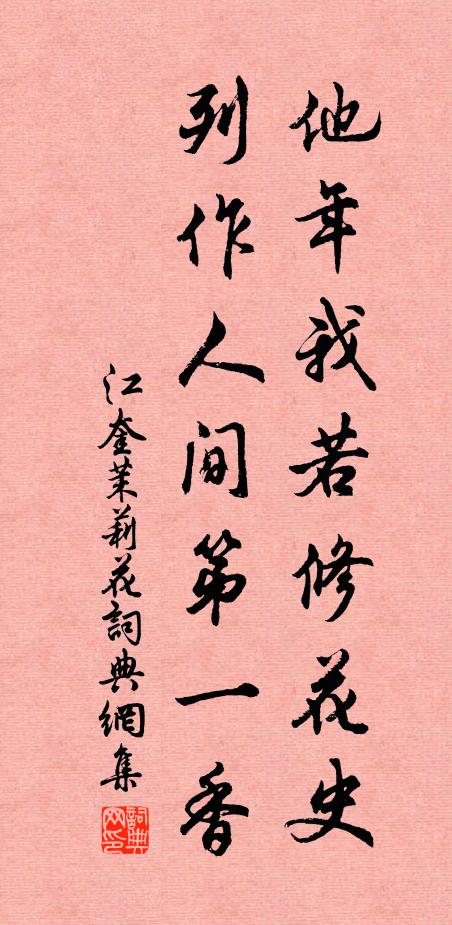 他年我若修花史
列作人间第一香
江奎茉莉花詞典網集
詞典网印